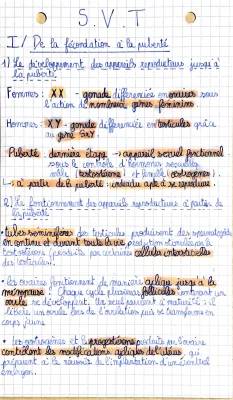 S.V.T
I/ De la fécondation à la puberté
1) Le développement des appareils reproducteurs jusqu'à
la puberté.
Femmes : XX - gonade différenciée en ovaires sous
l'action de nombreux gènes féminins
Hommes : XY - gonade différenciée en testicules grâce
au gène SRY
Puberté : dernière étape → appareil sexuel fonctionnel
sous le contrôle d'hormones sexuelles
mâle (testostérone) et femelle (oestrogènes).
↳ à partir de la puberté : individu apte à se reproduire.
2) Le fonctionnement des appareils reproducteurs à partir de
la puberté
• tubes séminifères des testicules produisent des spermatozoïdes
en continu et durant toute la vie, production stimulée par la
testostérone (produite par certaines cellules interstitielles
des testicules).
• les ovaires fonctionnent de manière cyclique jusqu'à la
ménopause. Chaque cycle plusieurs follicules contenant un
ovule se développent. Un seul parvient à maturité : il
libère un ovule lors de l'ovulation puis se transforme en
corps jaune
• Les oestrogènes et la progestérone produits par l'ovaire
contrôlent les modifications cycliques de l'utérus, qui
préparent à la réussite de l'implantation d'un éventuel
embryon.